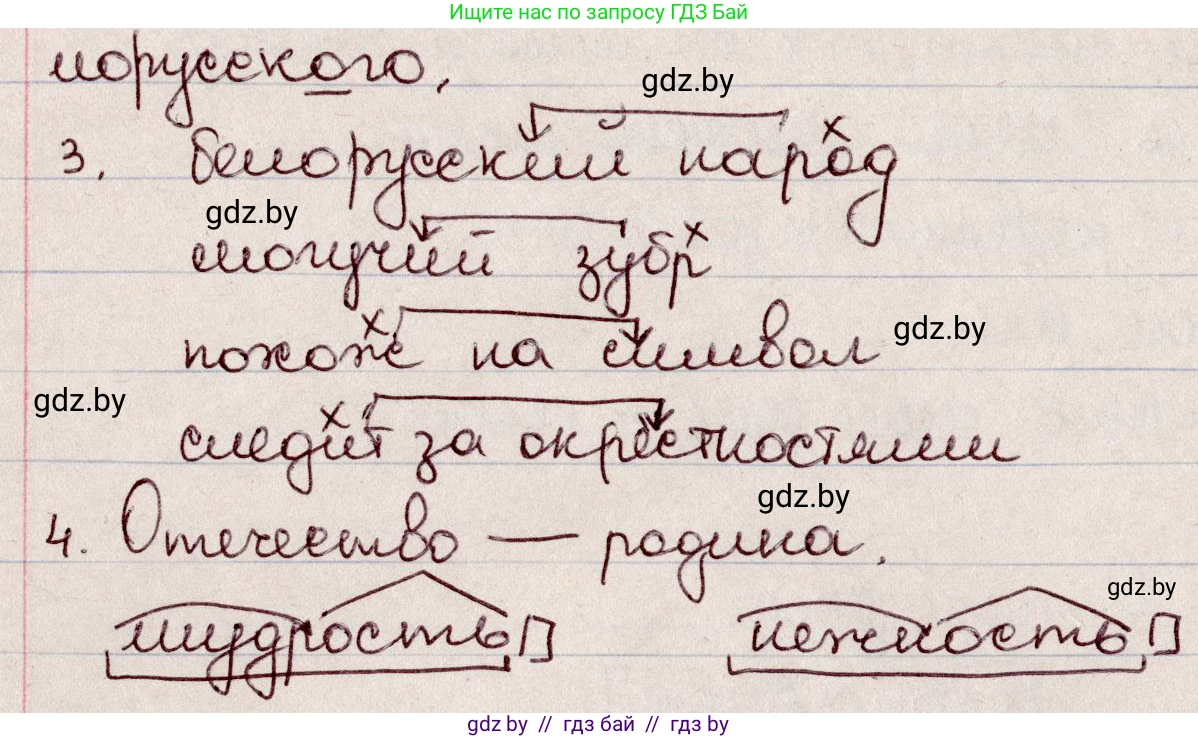 Ищите нас по запросу ГДЗ Бай
лорусского.
gdz.by
3. белорусский народ
gdz.by
могучий зубр
похож на символ
gdz.by
gdz.by
следит за окрестностями
gdz.by
4. Отечество — родина.
gdz.by
мудрость нежность
gdz.by // гдз бай // гдз by